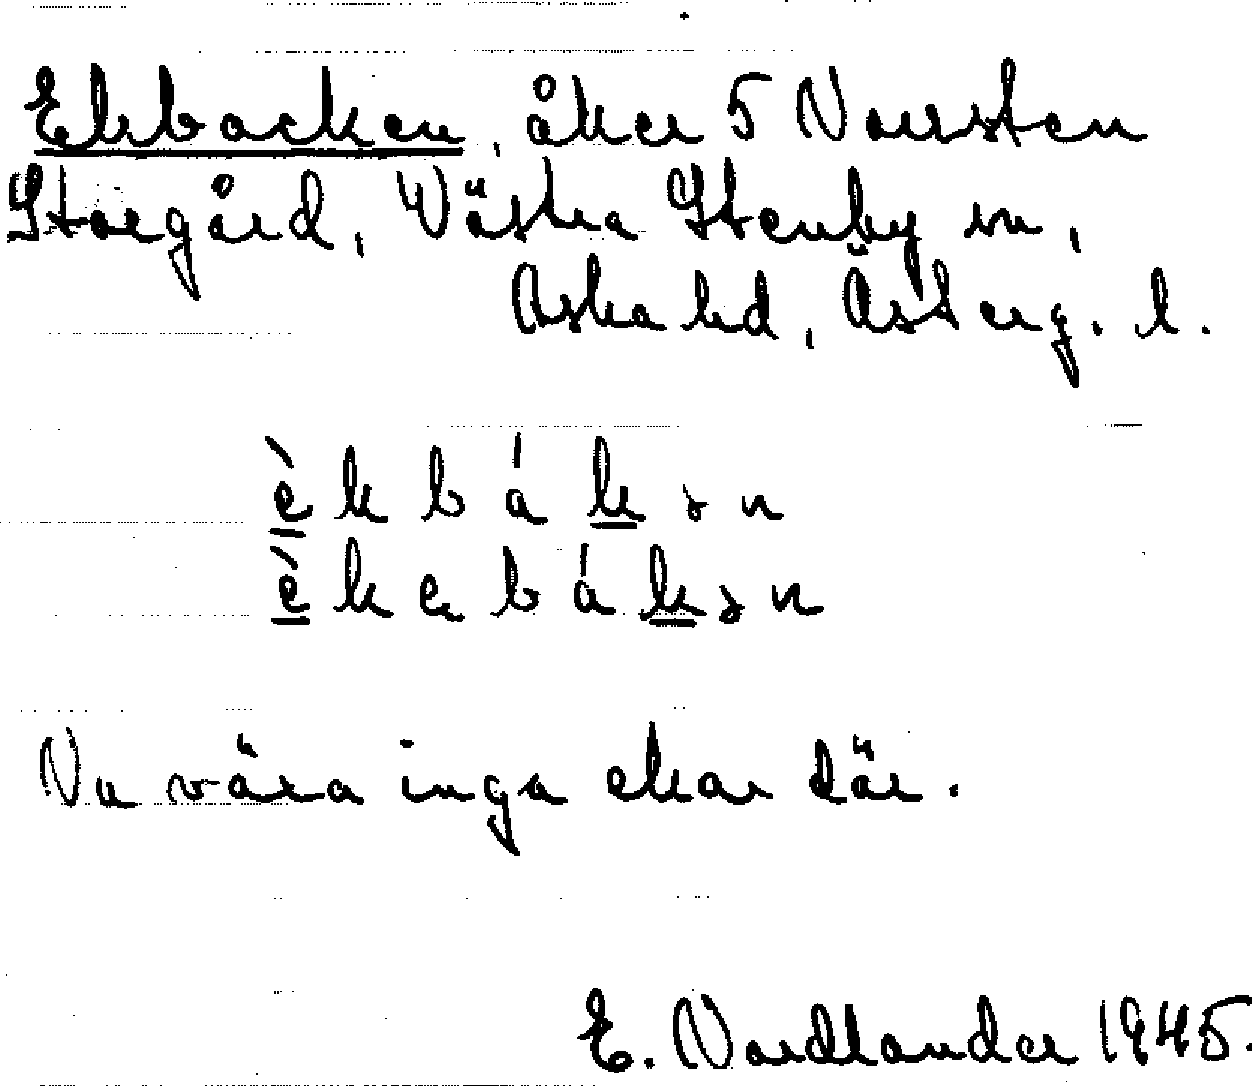 Ekbacken, åker 5 Norrsten
Storgård, Västra Stenby sn,
Aska hd, Österg. l.
è̲kbák̲ən
è̲kebák̲ən
Nu växa inga ekar där.
E. Nordlander 1945.